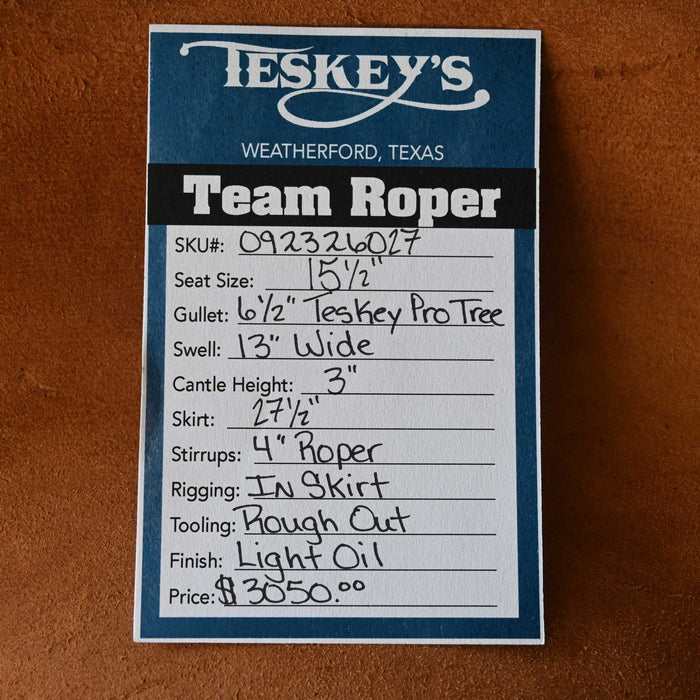 TESKEY'S
WEATHERFORD, TEXAS
Team Roper
SKU#: 092326027
Seat Size: 15 1/2"
Gullet: 6 1/2" Teskey Pro Tree
Swell: 13" Wide
Cantle Height: 3"
Skirt: 27 1/2"
Stirrups: 4" Roper
Rigging: In Skirt
Tooling: Rough Out
Finish: Light Oil
Price: $3050.00